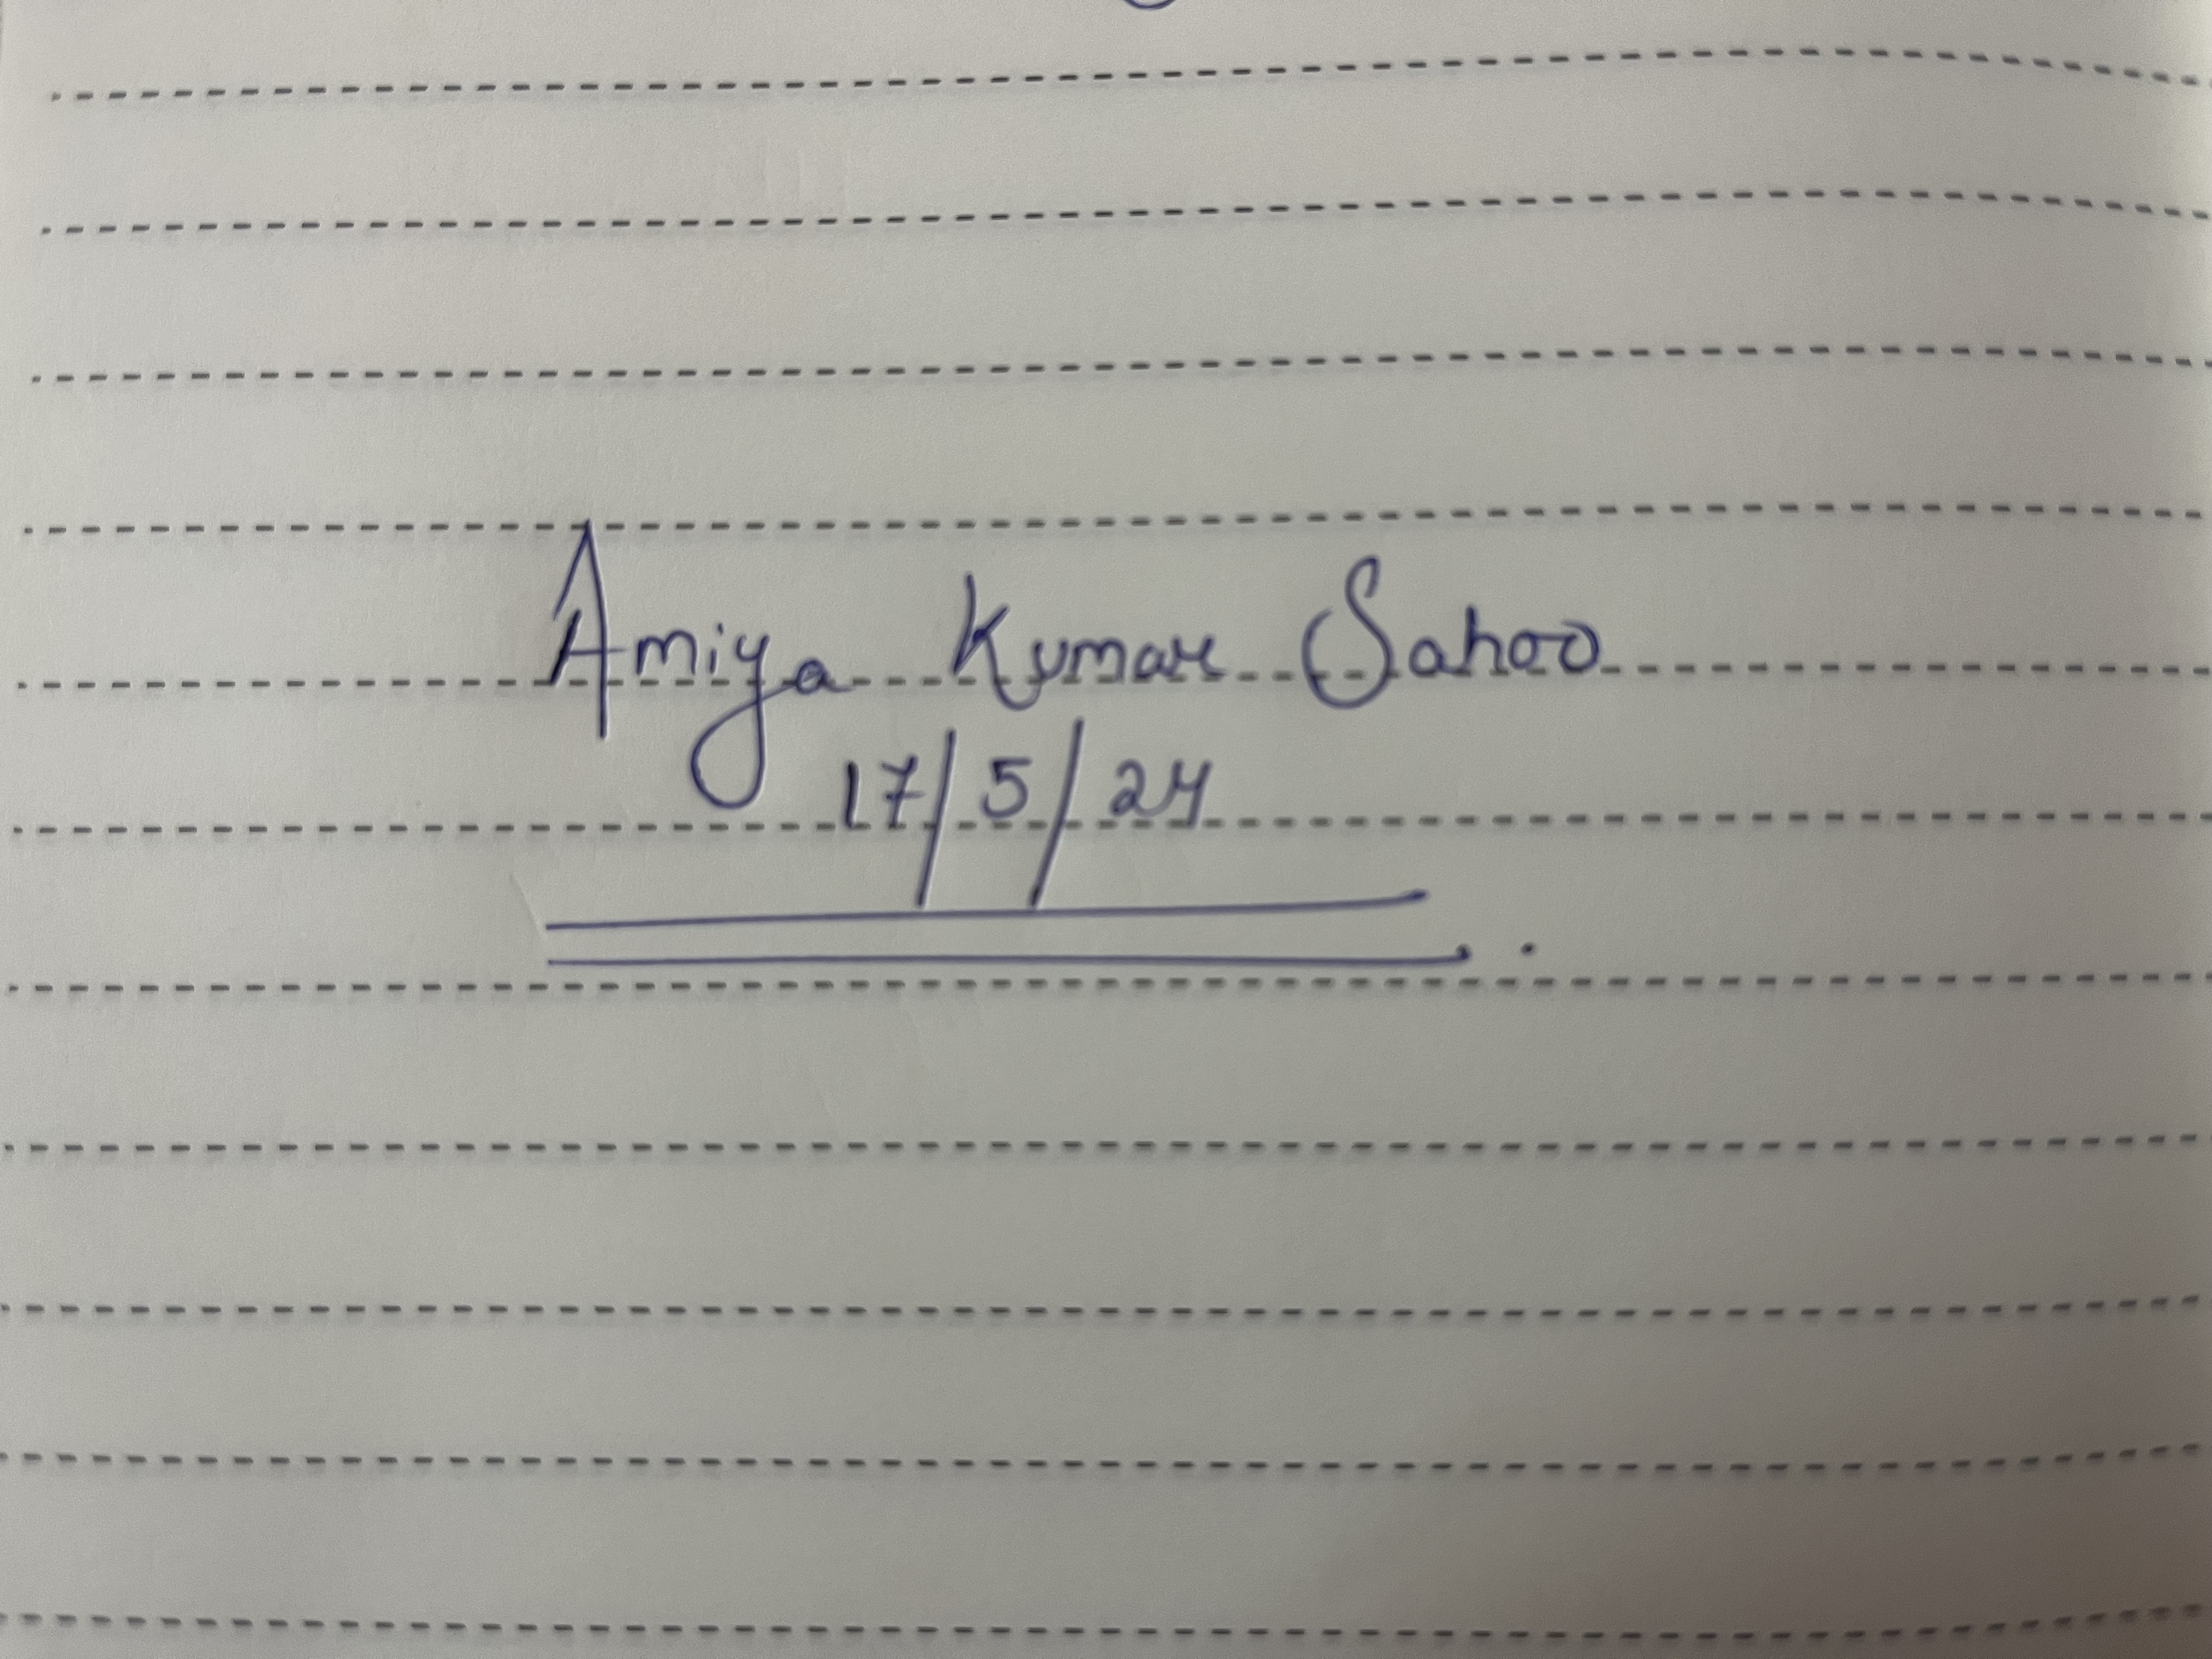 Amiya Kumar Sahoo
17/5/24